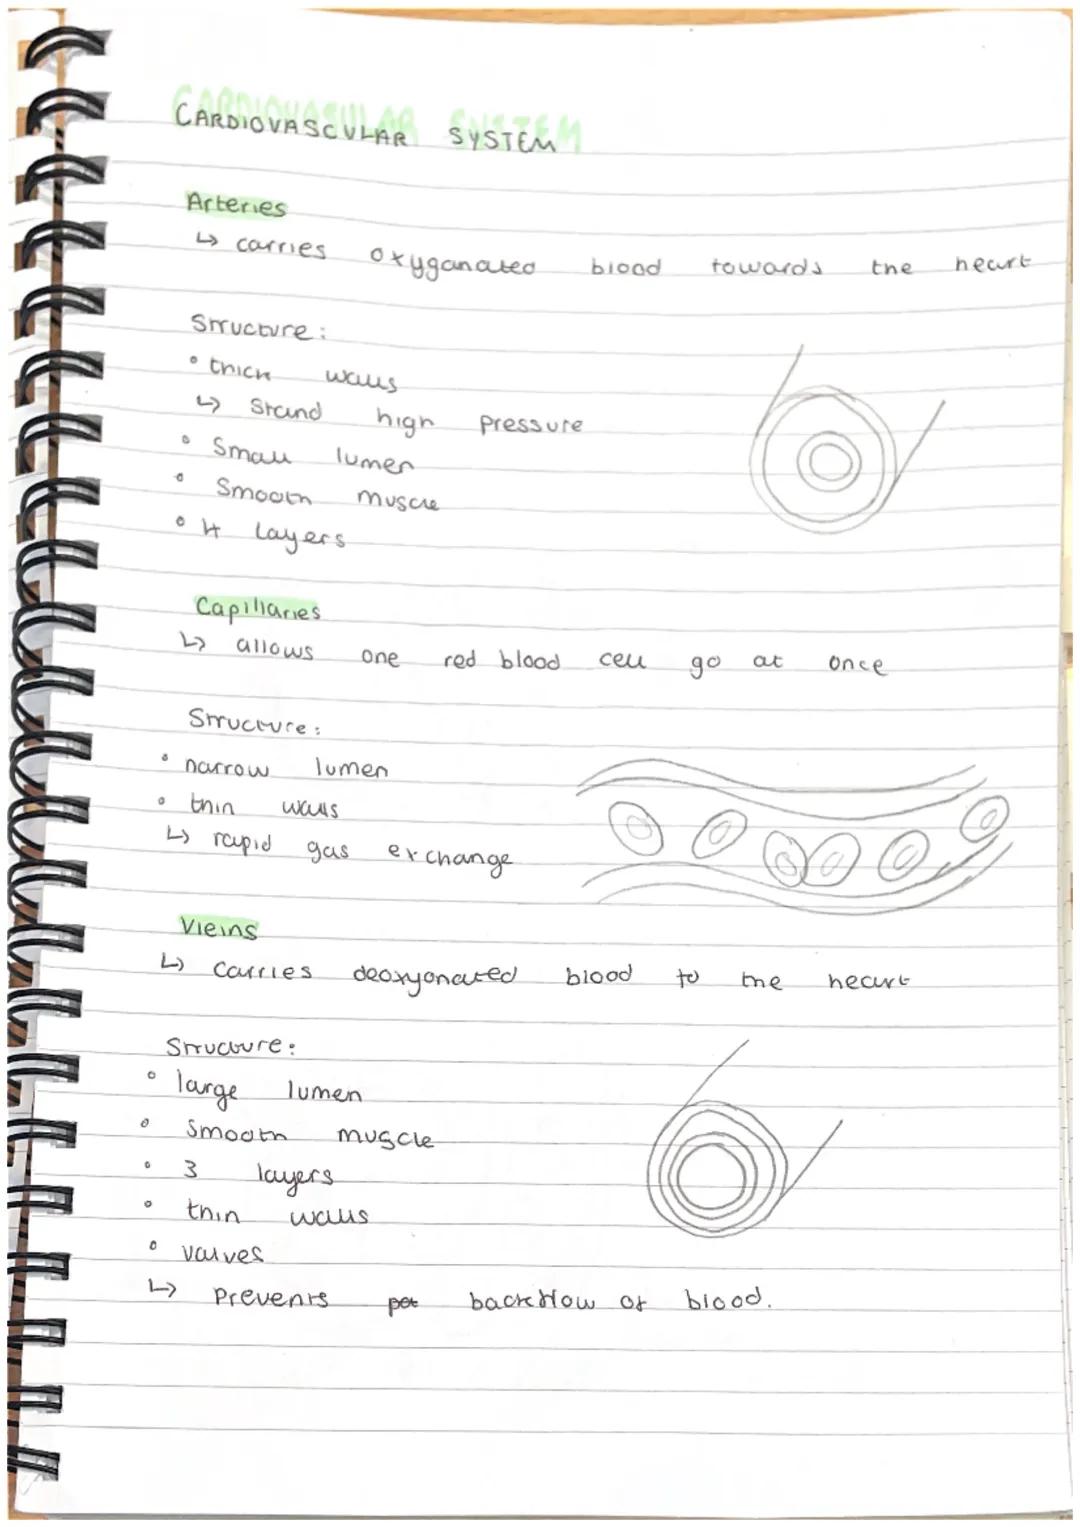 CARDIOVASCULAR SYSTEM
Arteries
↳ carries oxyganated blood towards the heart
Structure:
• thick walls
↳ Stand high pressure
• Small lumen
• Smooth muscle
• 4 layers
Capillaries
↳ allows one red blood cell go at once
Structure:
• narrow lumen
• thin walls
↳ rapid gas exchange
Vieins
↳ carries deoxyonated blood to the heart
Structure:
• large lumen
• Smooth muscle
• 3 layers
• thin walls
• valves
↳ Prevents backflow of blood.